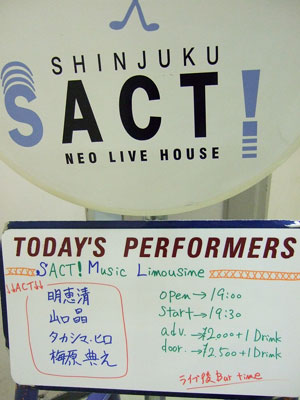 SHINJUKU
SACT!
NEO LIVE HOUSE
TODAY'S PERFORMERS
SACT! Music Limousine
↓↓ACT↓↓
明恵清
山口晶
タカシマ・ヒロ
梅原典之
open→19:00
Start→19:30
adv.→¥2000+1Drink
door.→¥2,500+1Drink
ライブ後Bar time